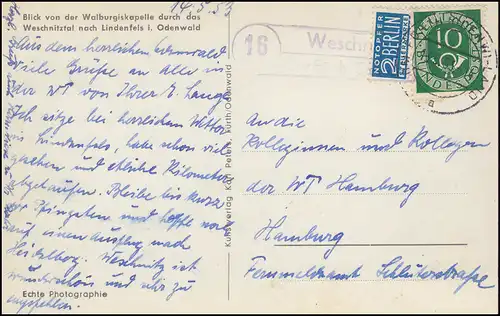 14.5.53
Blick von der Walburgiskapelle durch das
Weschnitztal nach Lindenfels i. Odenwald
Aus dem herrlichen Odenwald
Viele Grüße an alle in
der WT von Ihrer J. Lange
Ich sitze bei herrlichem Wetter
in Lindenfels, habe schon viel
gesehen und etliche Kilometer
abgelaufen. Bleibe bis kurz
vor Pfingsten und hoffe noch
auf einen Ausflug nach
Heidelbg. Weschnitz ist
wunderschön und nur zu
empfehlen.
Echte Photographie
Kunstverlag Karl Peters, Fürth/Odenwald
16
Weschn
NOTOPFER
2 BERLIN
STEUERMARKE
10
DEUTSCHE
BUNDESPOST
a
An die
Kolleginnen und Kollegen
der WT Hamburg
Hamburg
Fernmeldeamt Schlüterstraße